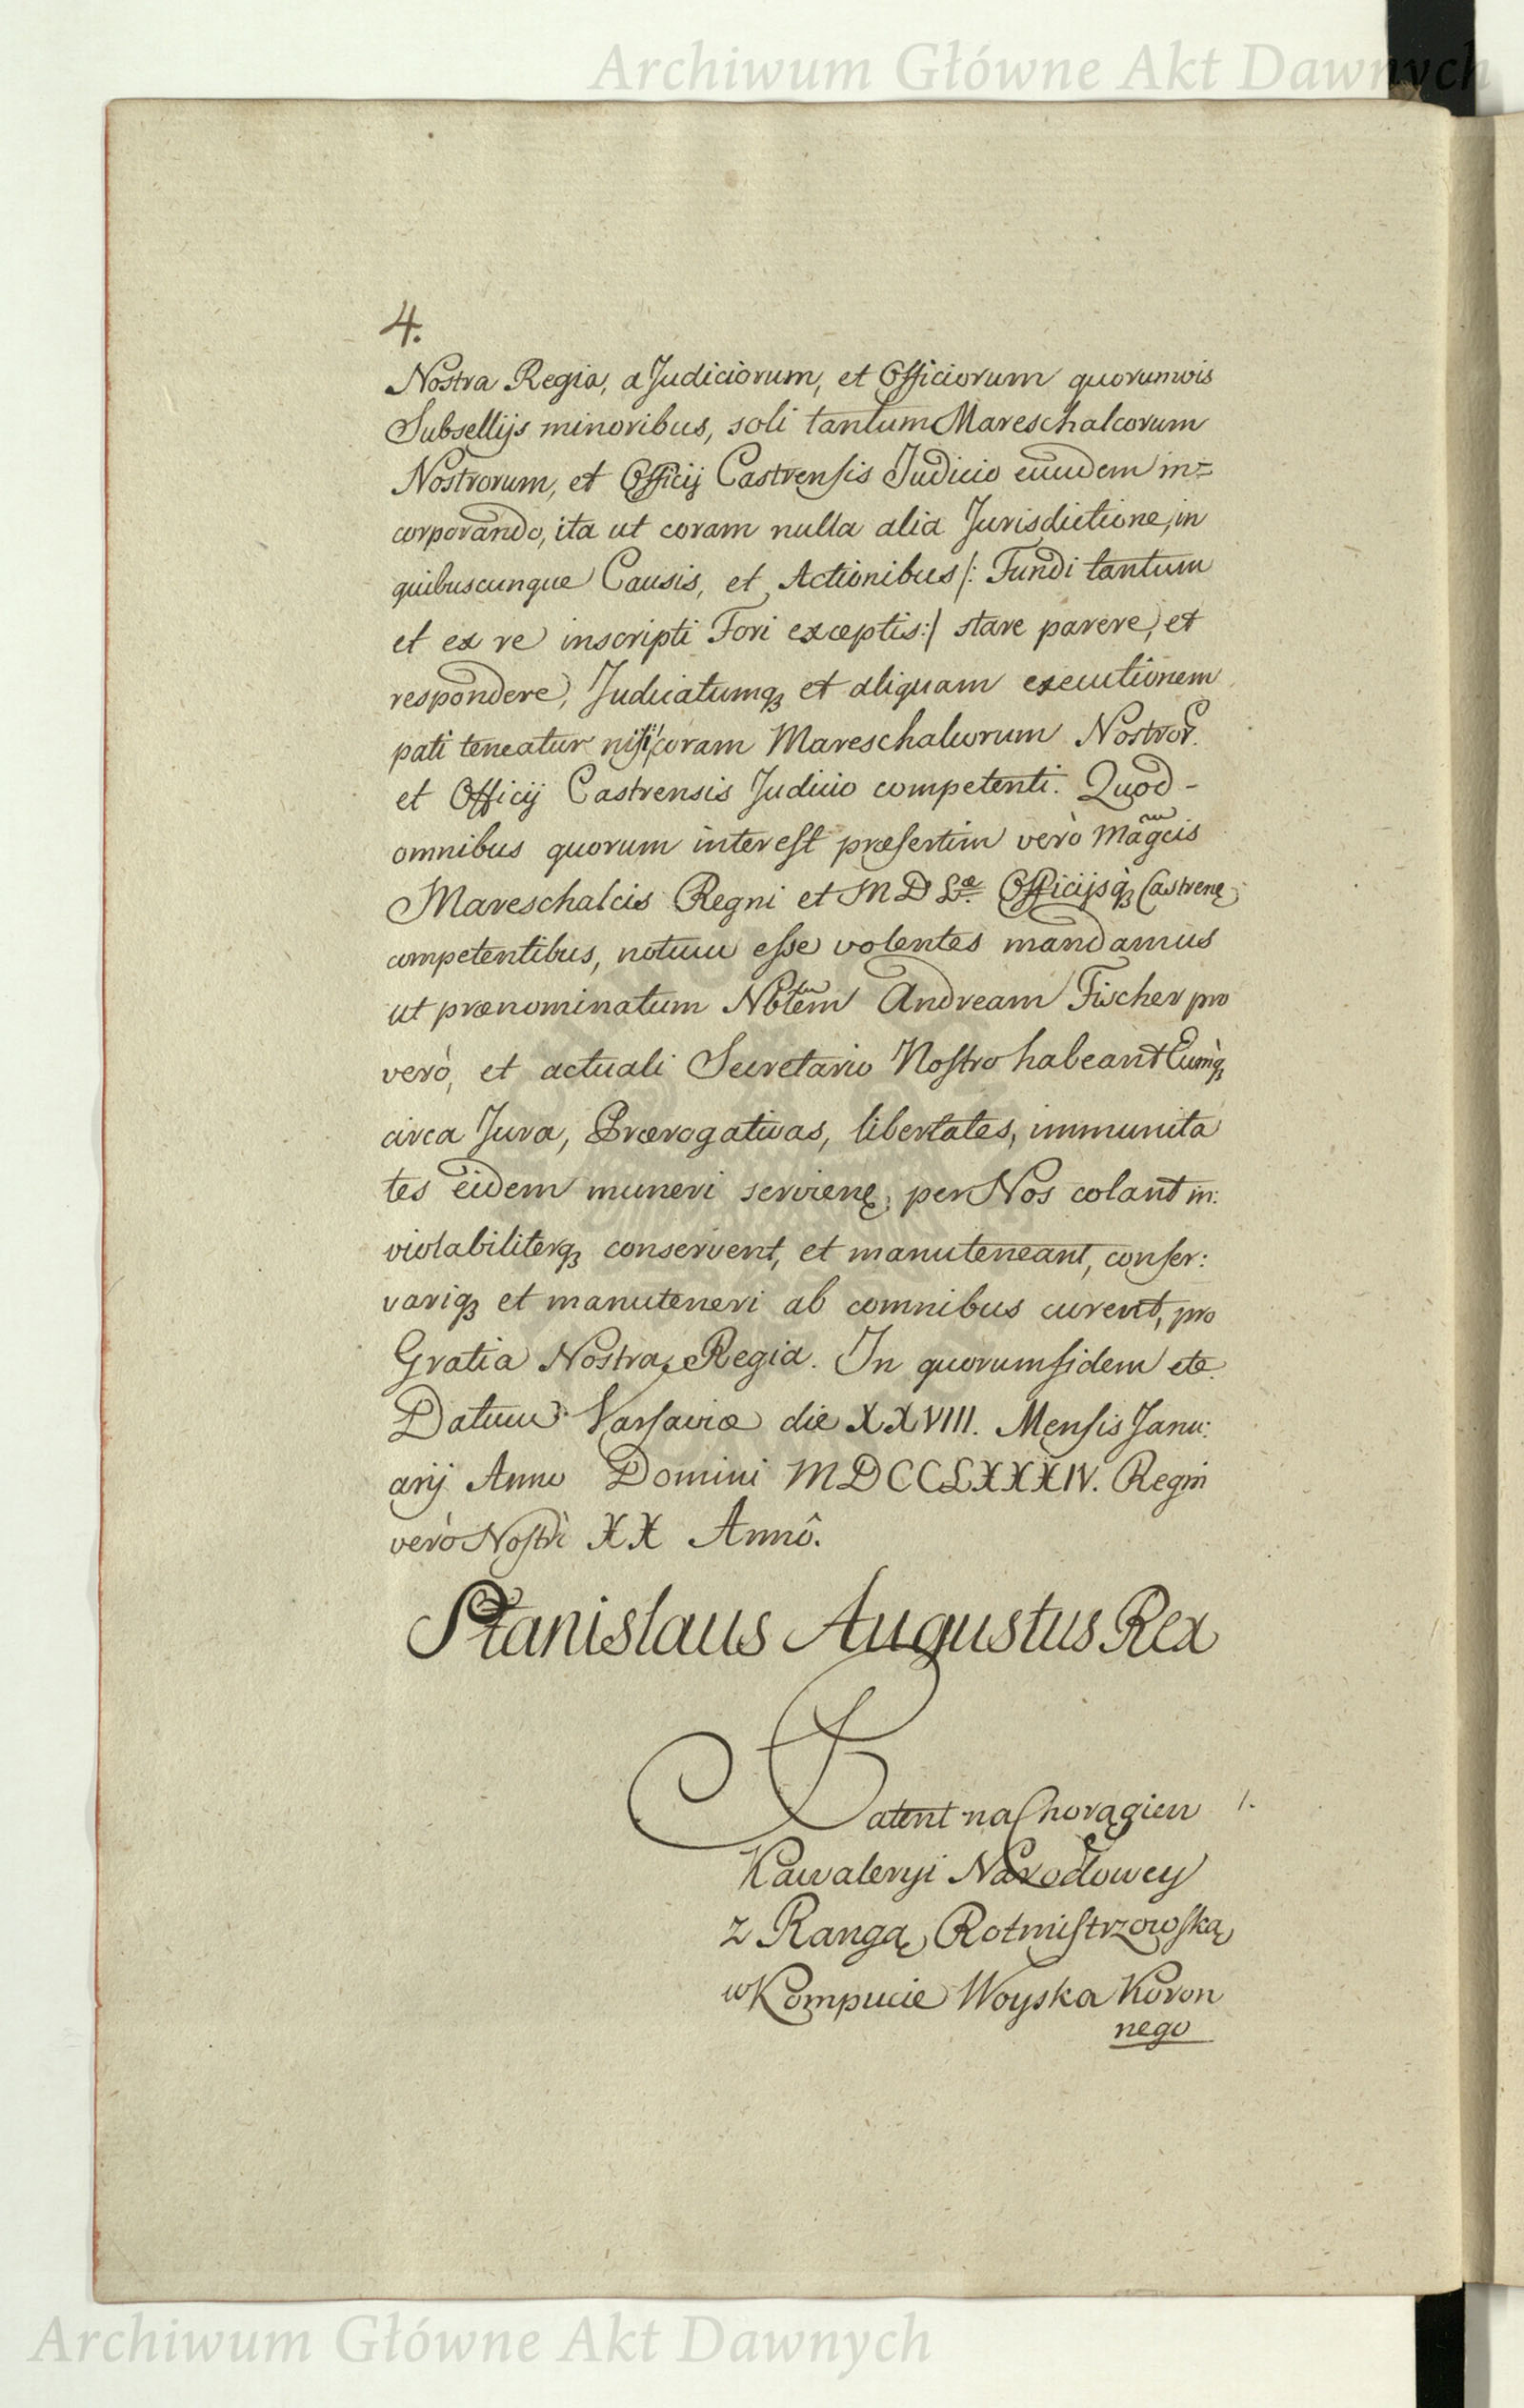 Archiwum Główne Akt Dawnych
4.
Nostra Regia, a Judiciorum, et Officiorum quorumvis
Subsellijs minoribus, soli tantum Mareschalcorum
Nostrorum, et Officij Castrensis Judicio eundem in=
corporando, ita ut coram nulla alia Jurisdictione, in
quibuscunque Causis, et Actionibus /: Fundi tantum
et ex re inscripti Fori exceptis :/ stare parere, et
respondere, Judicatumq3 et aliquam executionem
pati teneatur nisi coram Mareschalcorum Nostror.
et Officij Castrensis Judicio competenti. Quod -
omnibus quorum interest præsertim verò Mágcis
Mareschalcis Regni et M D L.æ Officijsq3 Castrenę
competentibus, notum esse volentes mandamus
ut prænominatum Nbtem Andream Fischer pro
verò, et actuali Secretario Nostro habeant Eumq3
circa Jura, Prærogativas, libertates, immunita
tes eidem muneri servienę, per Nos colant in:
violabiliterq3 conservent, et manuteneant, conser:
variq3 et manuteneri ab comnibus curent, pro
Gratia Nostra Regia. In quorum fidem etc.
Datum Varsaviæ die XXVIII. Mensis Janu:
arij Anno Domini MDCCLXXXIV. Regni
verò Nostri XX Annô.
Stanislaus Augustus Rex
Patent na Chorągiew 1.
Kawaleryi Narodowey
z Rangą Rotmistrzowską
w Kompucie Woyska Koron
nego
Archiwum Główne Akt Dawnych